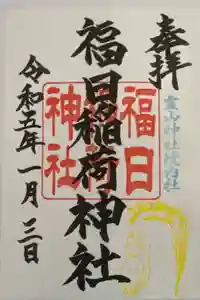 奉拝
霊山神社境内社
福日稲荷神社
福日
神社
令和五年一月三日